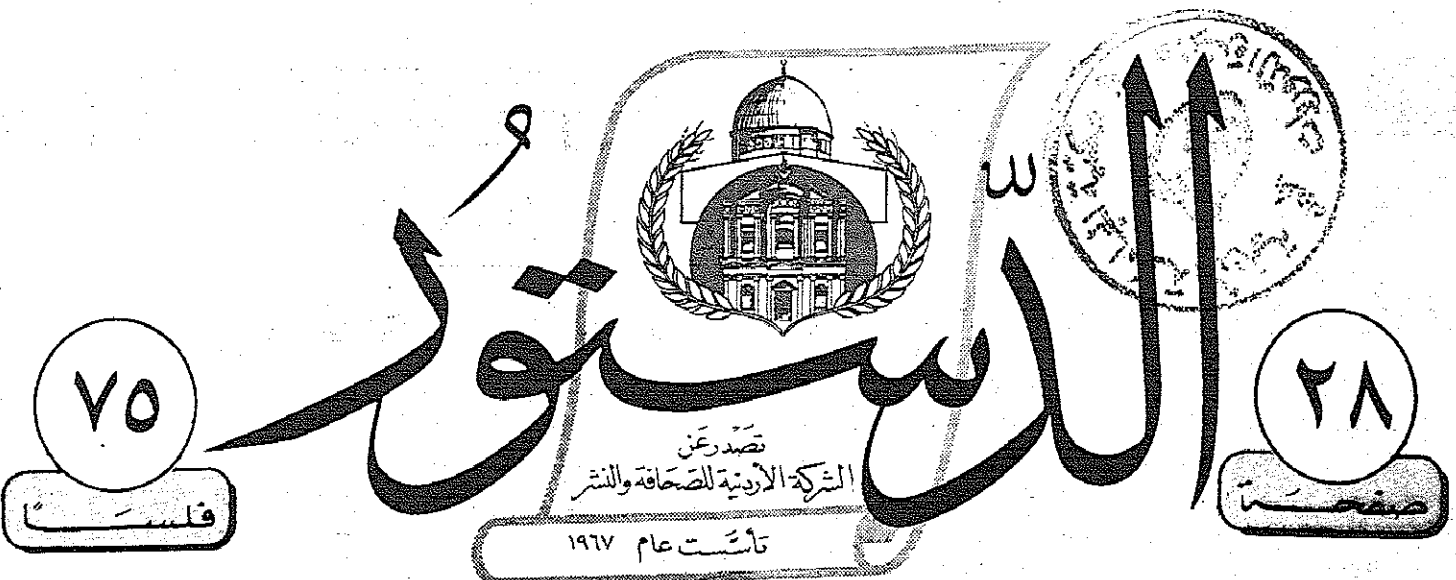 الدّستورُ
٢٨
صفحة
٧٥
فلسًا
تصدر عن
الشركة الأردنية للصحافة والنشر
تأسست عام ١٩٦٧